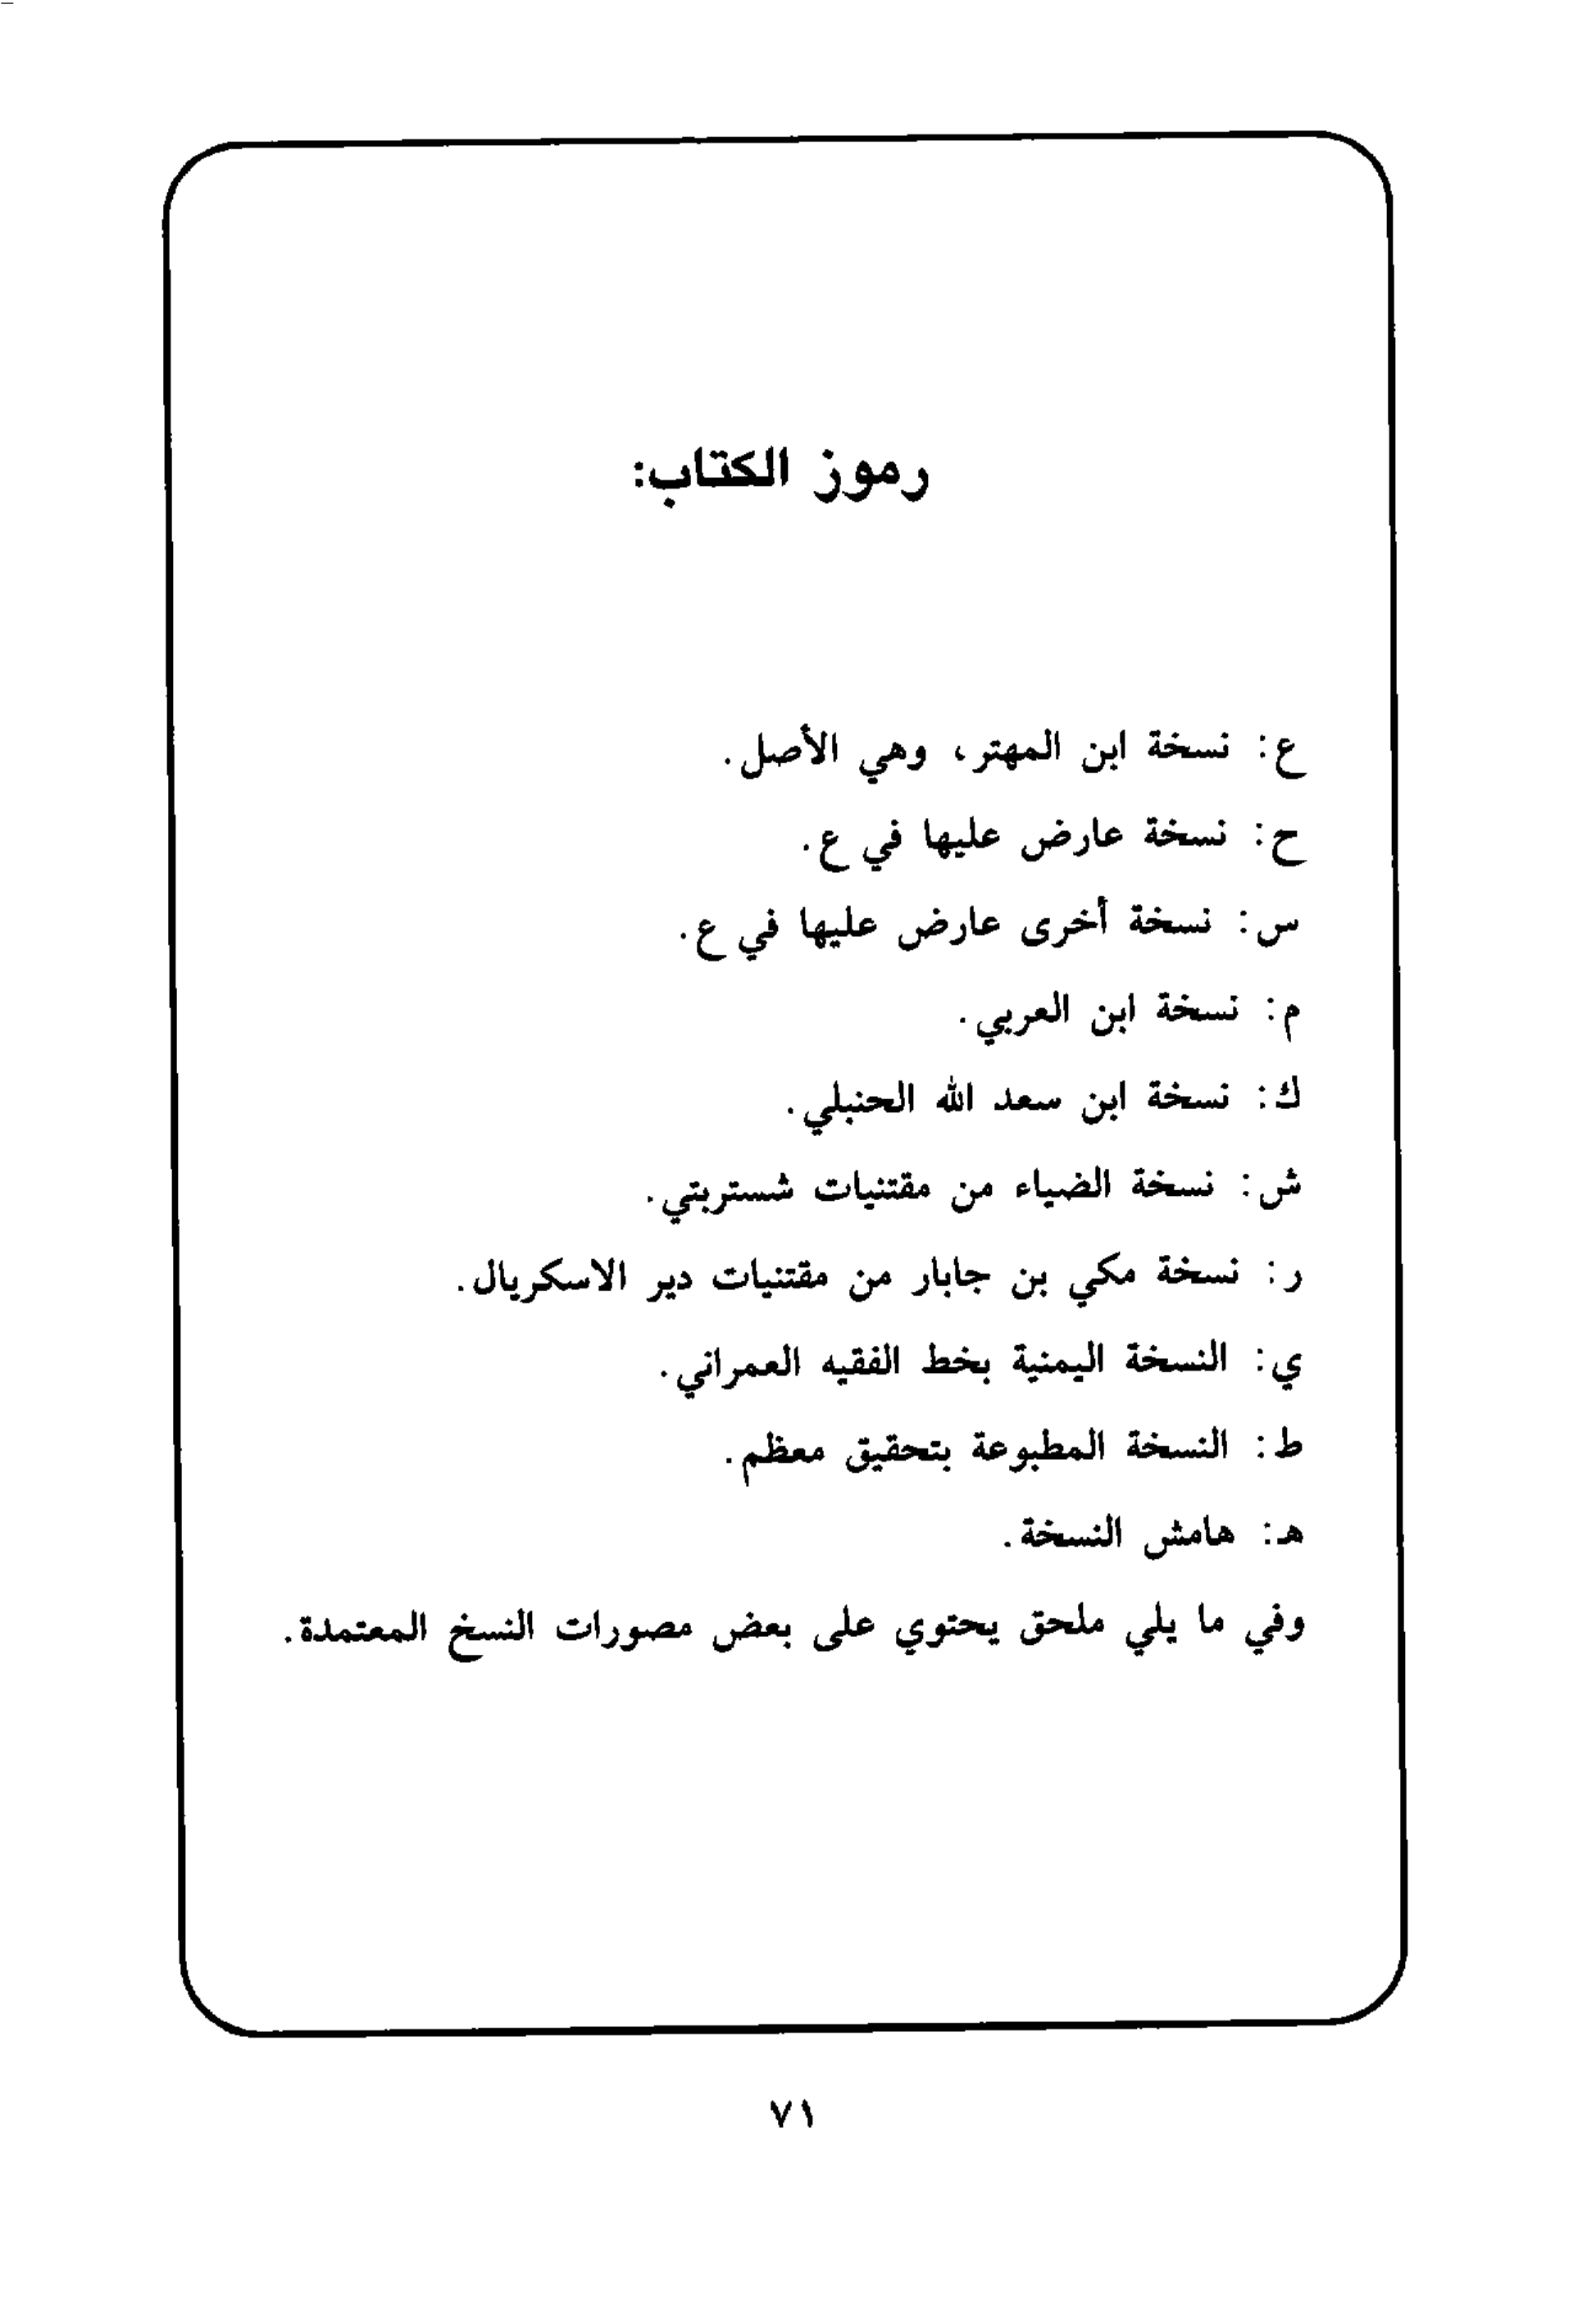 رموز الكتاب:
ع: نسخة ابن المهتر، وهي الأصل.
ح: نسخة عارض عليها في ع.
س: نسخة أخرى عارض عليها في ع.
م: نسخة ابن العربي.
ك: نسخة ابن سعد الله الحنبلي.
ش: نسخة الضياء من مقتنيات شستربتي.
ر: نسخة مكي بن جابار من مقتنيات دير الاسكريال.
ي: النسخة اليمنية بخط الفقيه العمراني.
ط: النسخة المطبوعة بتحقيق معظم.
هـ: هامش النسخة.
وفي ما يلي ملحق يحتوي على بعض مصورات النسخ المعتمدة.
٧١